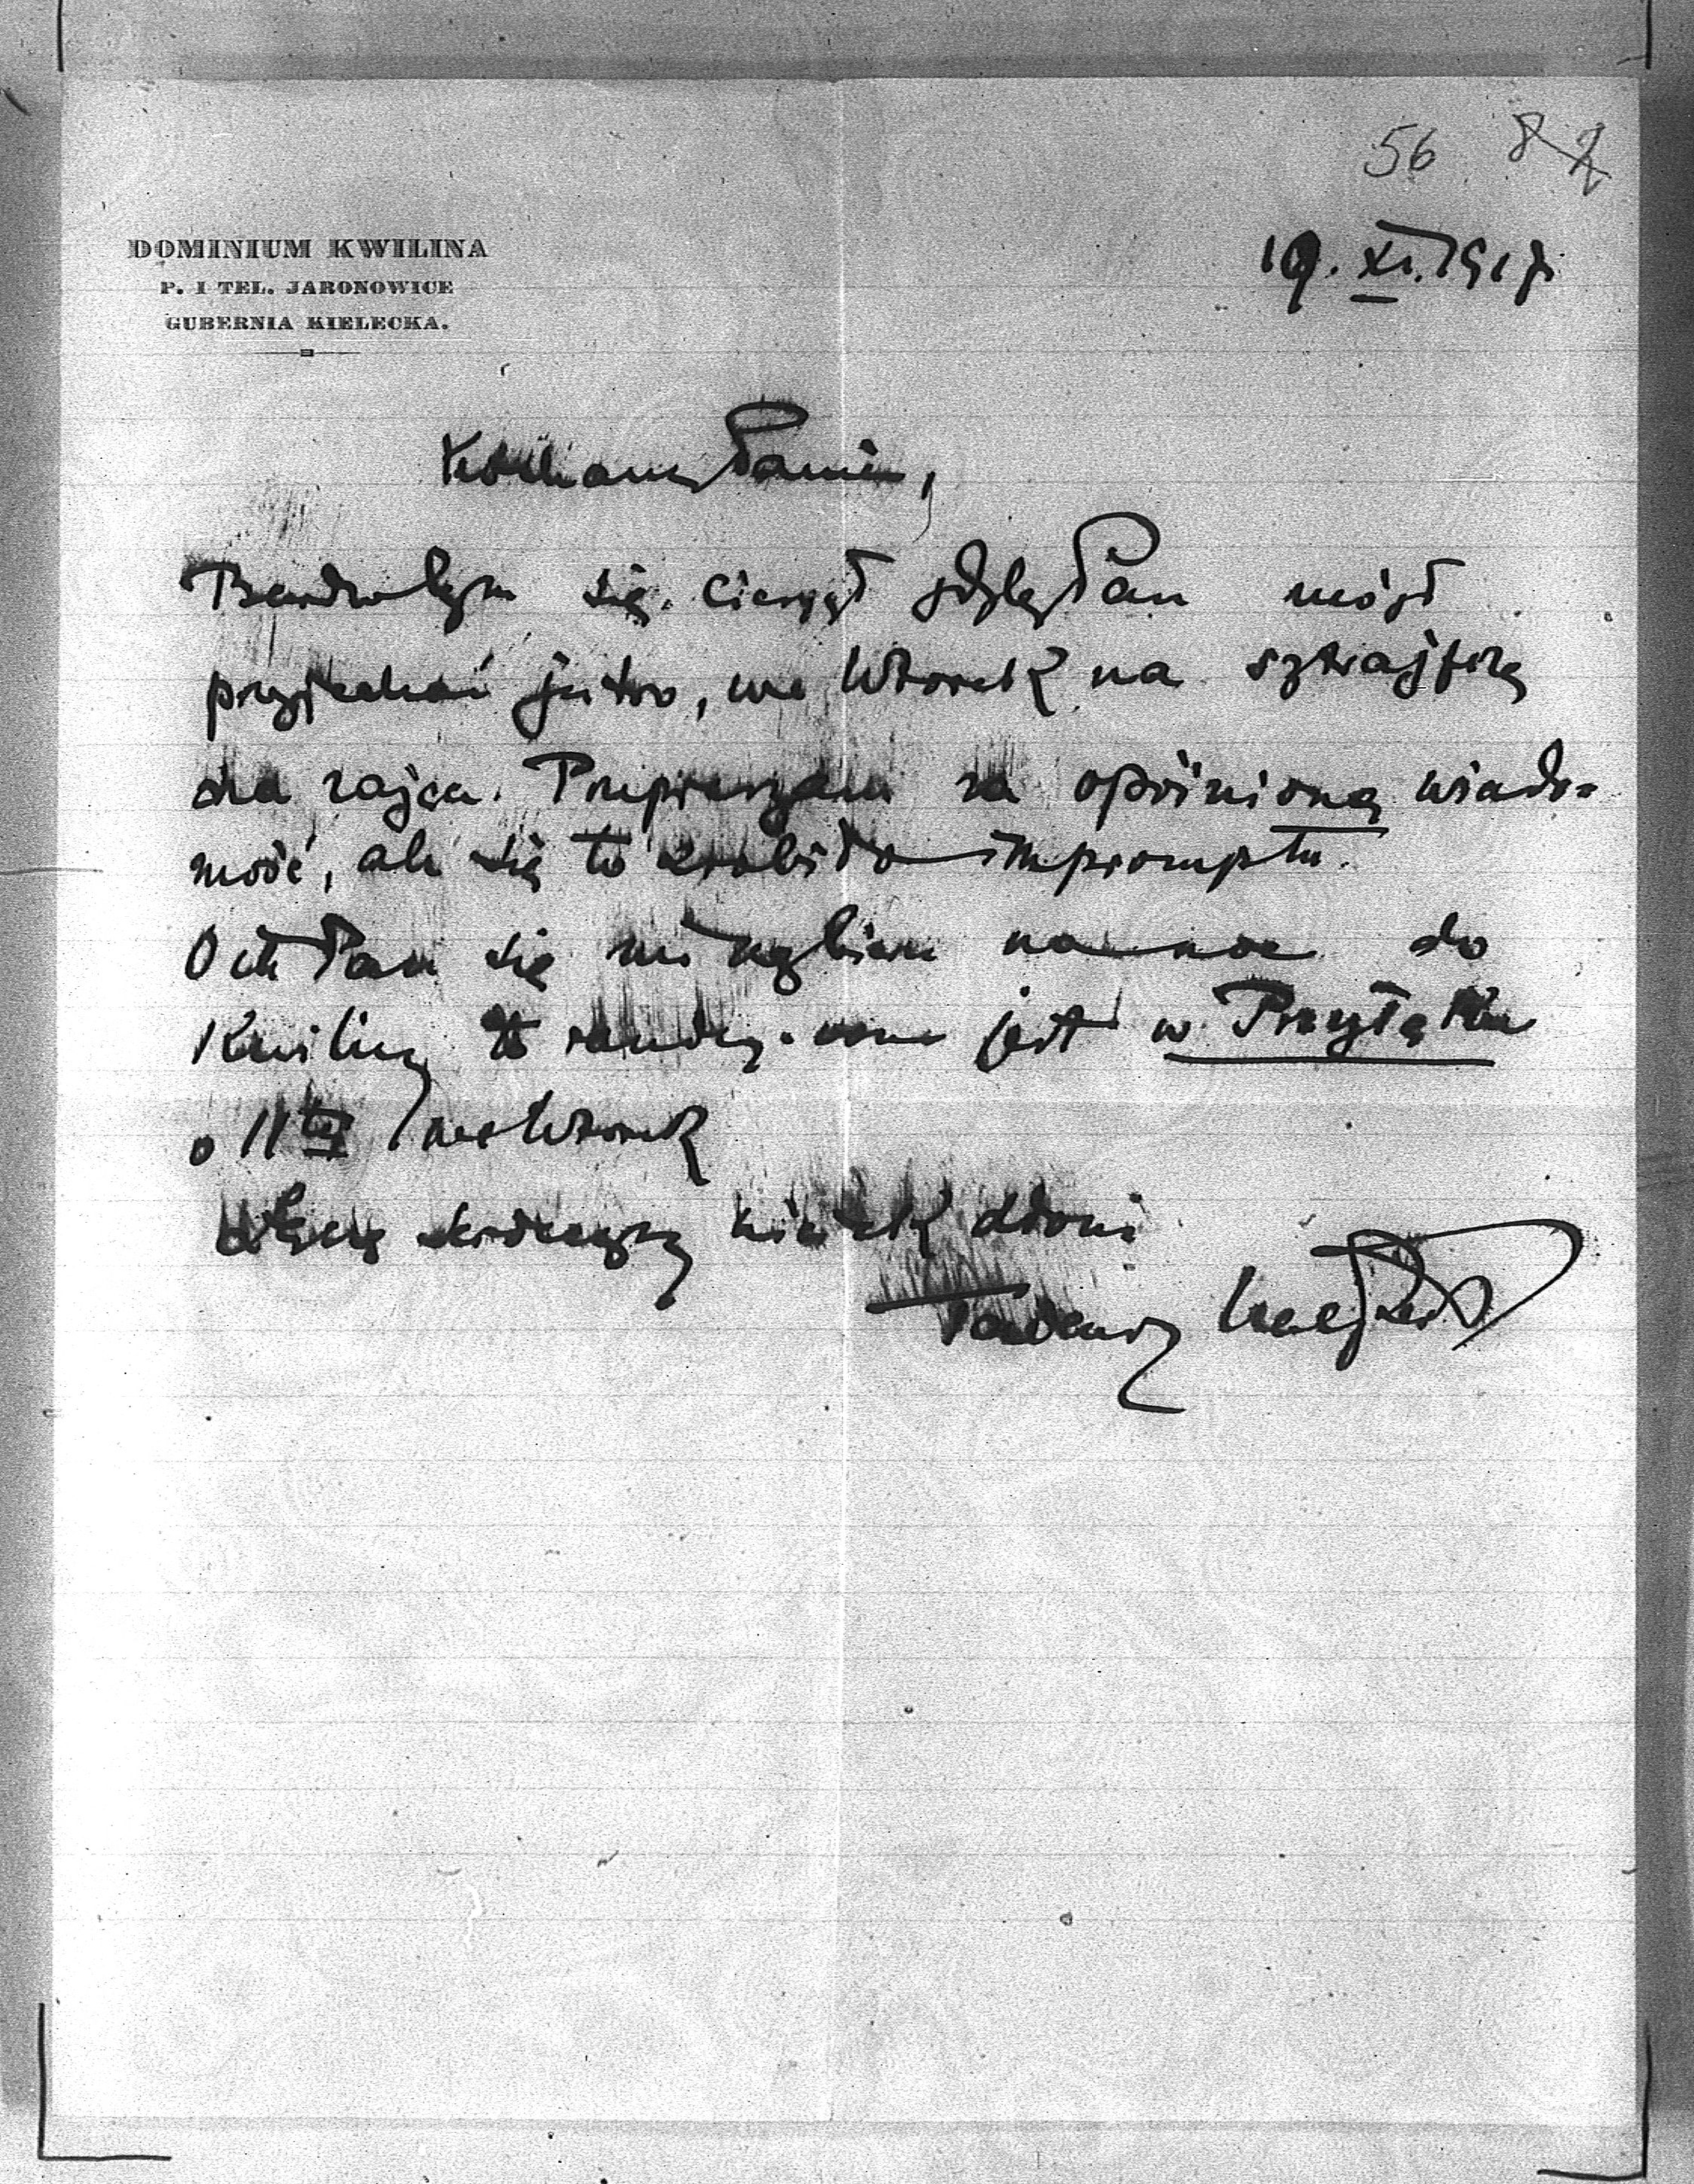 56 82
DOMINIUM KWILINA
P. I TEL. JARONOWICE
GUBERNIA KIELECKA.
19. XI. 1917
Kochany Panie,
Bardzobym się cieszył gdyby Pan mógł
przyjechać jutro, we Wtorek na sztrajfę
na zające. Przepraszam za opóźnioną wiado-
mość, ale się to zrobiło impromptu.
O ile Pan się nie wybiera na noc do
Kwiliny to rendez-vous jest w Przyłęku
o 11tej we Wtorek
Łączę serdeczny uścisk dłoni
Tadeusz